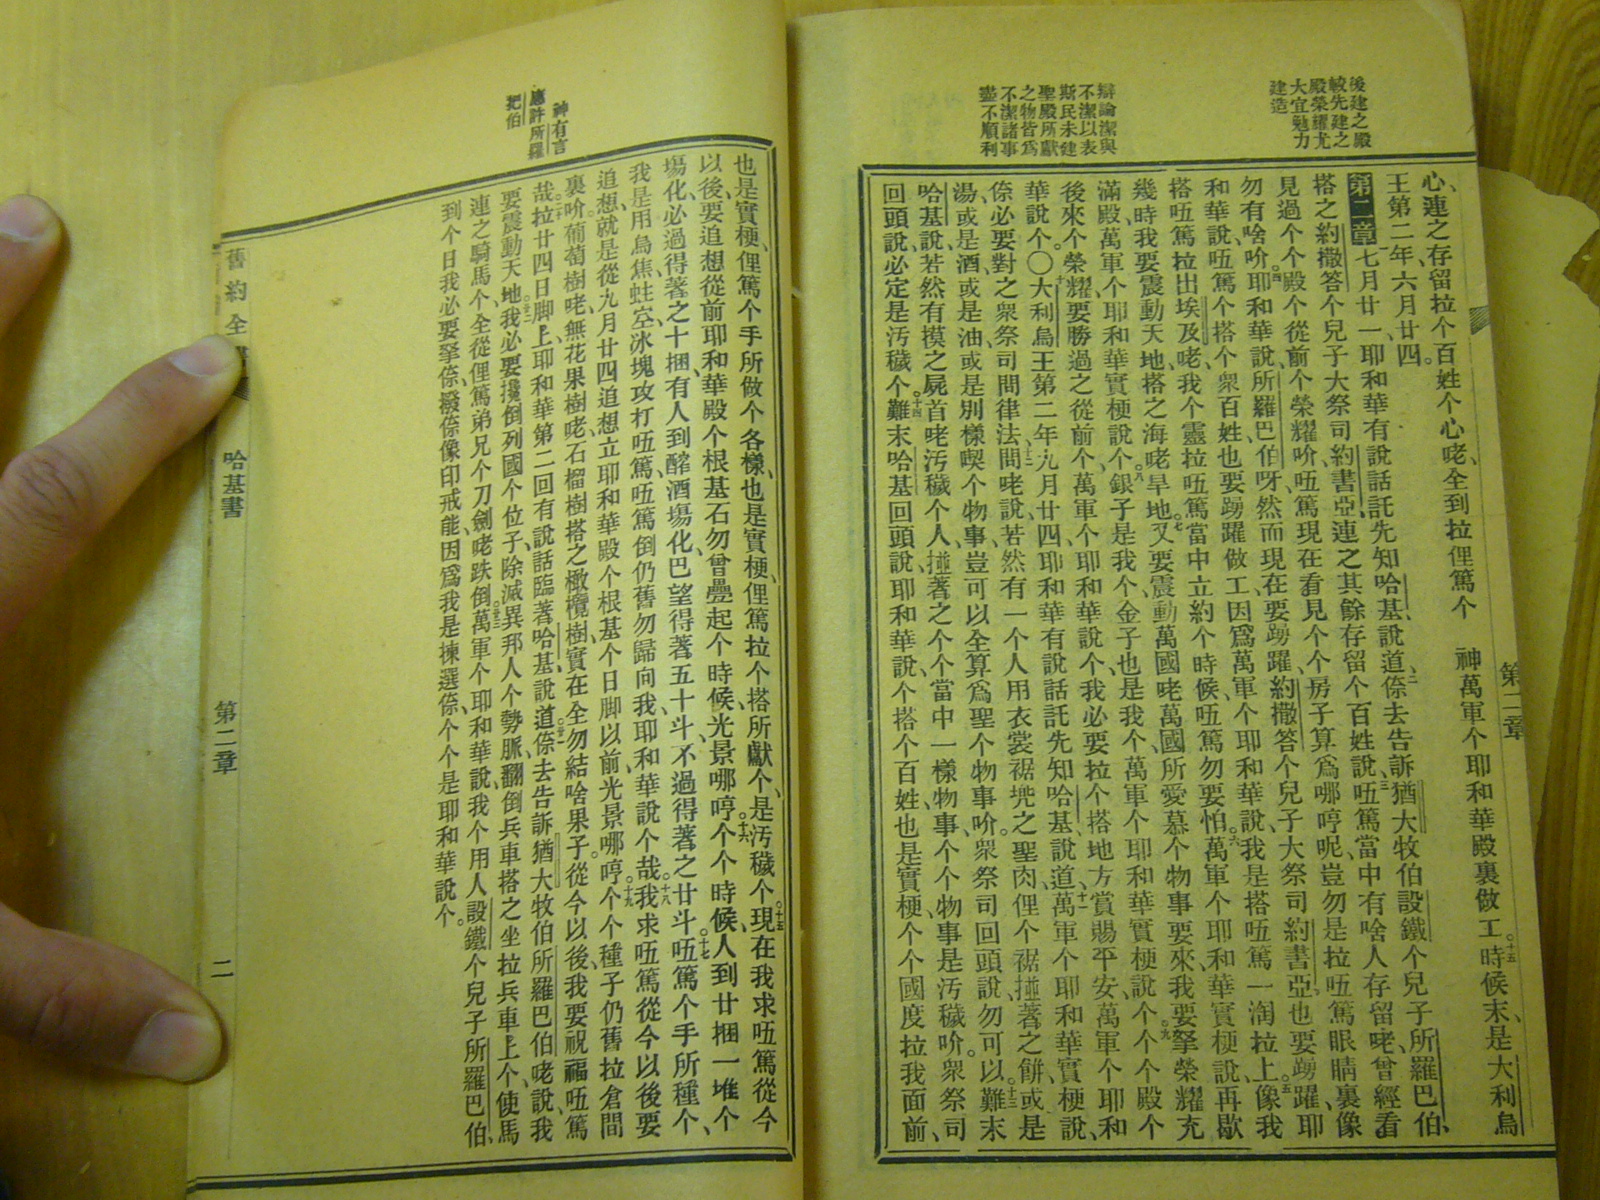 後建之殿
較先建之
殿榮耀尤
大宜勉力
建造
辯論潔與
不潔以表
斯民未建
聖殿所獻
之物皆爲
不潔諸事
盡不順利
第二章
心、連之存留拉个百姓个心咾、全到拉俚篤个 神萬軍个耶和華殿裏做工。十五時候末、是大利烏
王第二年、六月廿四。
第二章 七月廿一、耶和華有說話託先知哈基、說道、二倷去告訴猶大牧伯設鐵个兒子所羅巴伯、
搭之約撒答个兒子大祭司約書亞、連之其餘存留个百姓說、三㕶篤當中有啥人存留咾、曾經看
見過个个殿个從前个榮耀吤、㕶篤現在看見个个房子算爲哪哼呢、豈勿是拉㕶篤眼睛裏像
勿有啥吤。四耶和華說、所羅巴伯呀、然而現在要踴躍、約撒答个兒子大祭司約書亞也要踴躍、耶
和華說、㕶篤个搭个衆百姓也要踴躍做工、因爲萬軍个耶和華說、我是搭㕶篤一淘拉上、像我
搭㕶篤拉出埃及咾、我个靈拉㕶篤當中立約个時候、㕶篤勿要怕。六萬軍个耶和華實梗說、再歇
幾時、我要震動天地、搭之海咾旱地。七又要震動萬國咾、萬國所愛慕个物事要來、我要拏榮耀充
滿殿、萬軍个耶和華實梗說个。八銀子是我个、金子也是我个、萬軍个耶和華實梗說个。九个个殿个
後來个榮耀、要勝過之從前个、萬軍个耶和華說个、我必要拉个搭地方賞賜平安、萬軍个耶和
華說个。〇十大利烏王第二年、九月廿四、耶和華有說話託先知哈基、說道、十一萬軍个耶和華實梗說、
倷必要對之衆祭司問律法問咾說、十二若然有一个人用衣裳裾兜之聖肉、俚个裾掽著之餅、或是
湯、或是酒、或是油、或是別樣喫个物事、豈可以全算爲聖个物事吤。衆祭司回頭說、勿可以。十三難末
哈基說、若然有摸之屍首咾汚穢个人、掽著之个个當中一樣物事、个个物事是汚穢吤。衆祭司
回頭說、必定是汚穢个。十四難末哈基回頭說、耶和華說个、搭个百姓也是實梗、个个國度拉我面前、
神有言
應許所羅
把伯
也是實梗、俚篤个手所做个各樣、也是實梗、俚篤拉个搭所獻个、是汚穢个。十五現在我求㕶篤從今
以後要追想、從前耶和華殿个根基石勿曾疊起个時候、光景哪哼。十六个个時候、人到廿捆一堆个
塲化、必過得著之十捆、有人到醡酒塲化、巴望得著五十斗、不過得著之廿斗。十七㕶篤个手所種个、
我是用烏焦蛀空冰塊攻打㕶篤、㕶篤倒仍舊勿歸向我、耶和華說个哉。十八我求㕶篤從今以後要
追想、就是從九月廿四、追想立耶和華殿个根基个日脚以前、光景哪哼。十九个个種子仍舊拉倉間
裏吤。葡萄樹咾、無花果樹咾、石榴樹、搭之橄欖樹、實在全勿結啥果子。從今以後、我要祝福㕶篤
哉。二十拉廿四日脚上、耶和華第二回有說話臨著哈基、說道、廿一倷去告訴猶大牧伯所羅巴伯咾說、我
要震動天地。廿二我必要攙倒列國个位子、除滅異邦人个勢脈、翻倒兵車、搭之坐拉兵車上个、使馬
連之騎馬个、全從俚篤弟兄个刀劍咾跌倒。廿三萬軍个耶和華說、我个用人設鐵个兒子所羅巴伯、
到个日、我必要拏倷、撥倷像印戒能、因爲我是揀選倷个、个是耶和華說个。
舊約全書
哈基書
第二章
二